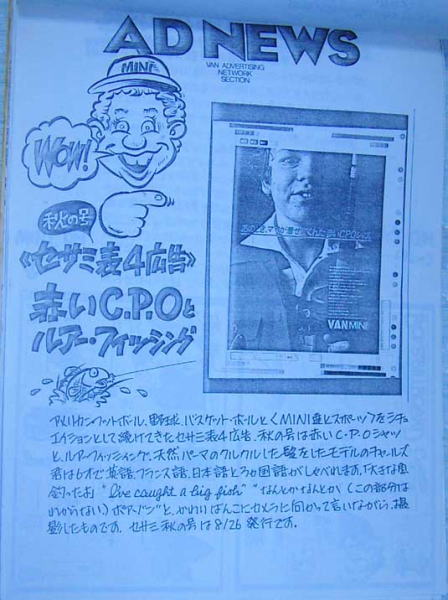 AD NEWS
VAN ADVERTISING
NETWORK
SECTION
MINI
WOW!
秋の号
《セサミ表4広告》
赤いC.P.Oと
ルアー・フィッシング
VAN MINI
アメリカンフットボール、野球、バスケット・ボールと〈MINI
とスポーツ〉をシチュ
エイションとして続けてきたセサミ表4広告。秋の号は赤いC・P・Oシャツ
と、ルアーフィッシング。天然パーマのクルクルした髪をしたモデルのチャールズ
君は6才で英語、フランス語、日本語と3ヵ国語がしゃべれます。「大きな魚
釣ったよ」"I've caught a big fish" "なんとかなんとか(この部分は
わからない)
"と、かわいば
こにカメラに向かって言いながら、撮
影したものです。セサミ秋の号は8/26発行です。